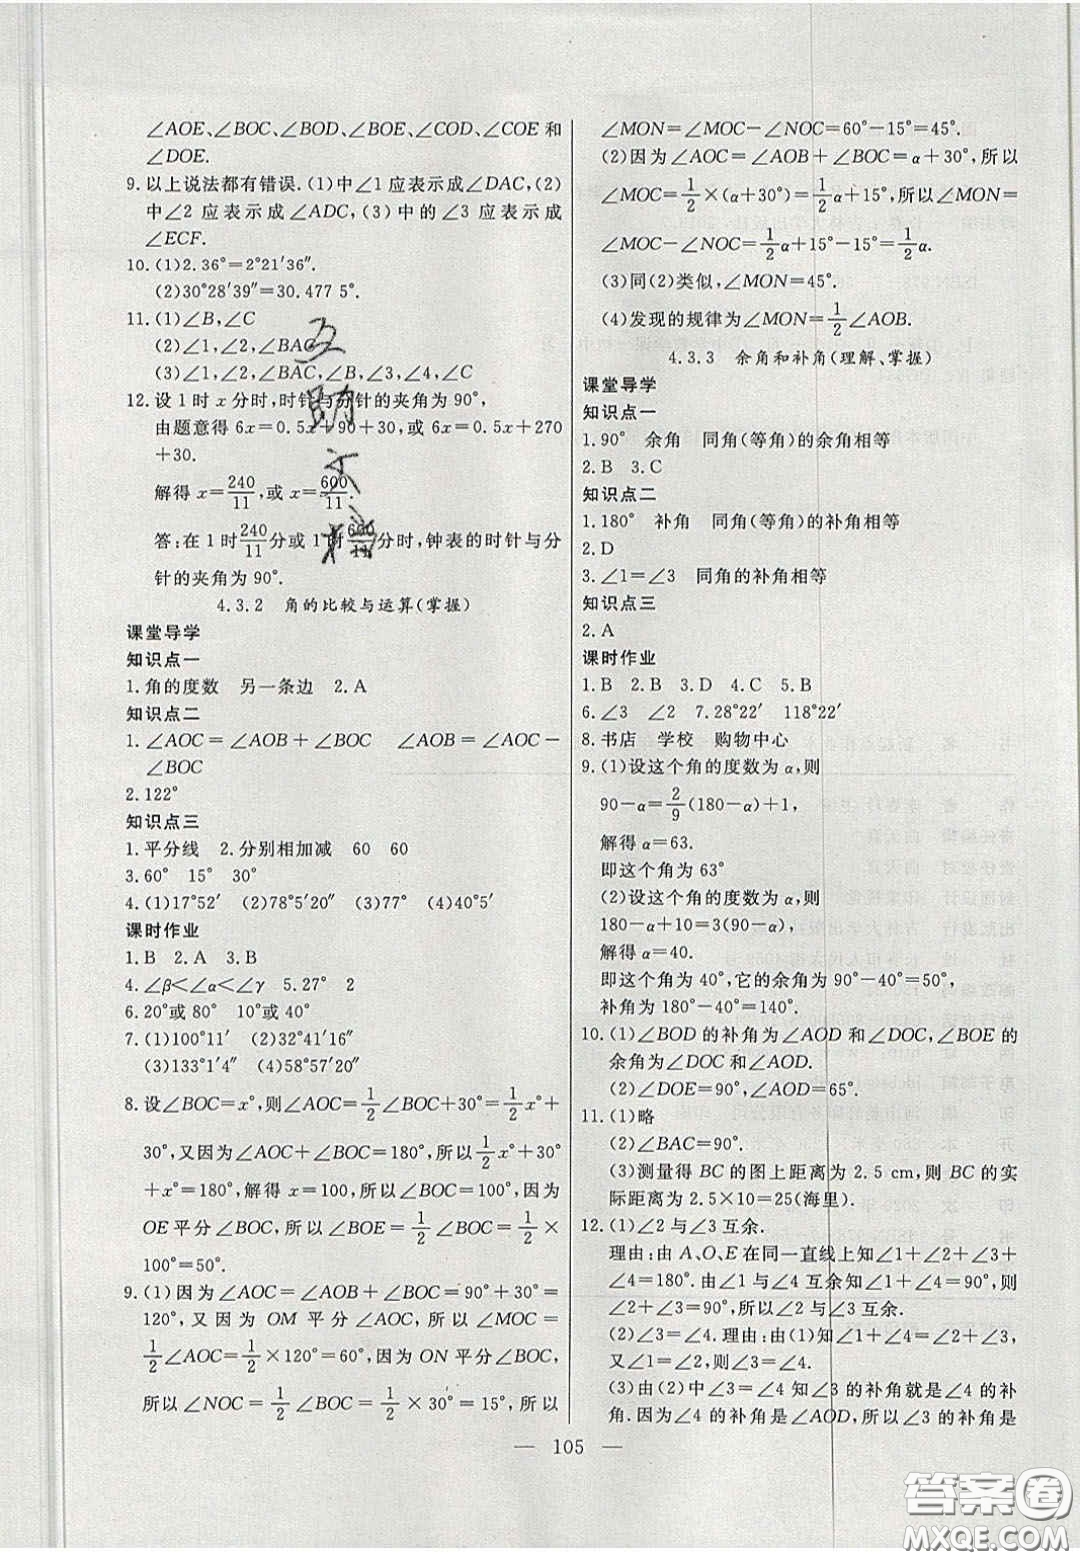 ∠AOE、∠BOC、∠BOD、∠BOE、∠COD、∠COE和
∠DOE.
9.以上说法都有错误.(1)中∠1应表示成∠DAC,(2)
中∠2应表示成∠ADC,(3)中的∠3应表示成
∠ECF.
10.(1)2.36°=2°21′36″.
(2)30°28′39″=30.477 5°.
11.(1)∠B,∠C
(2)∠1,∠2,∠BAC
(3)∠1,∠2,∠BAC,∠B,∠3,∠4,∠C
12.设1时x分时,时针与分针的夹角为90°,
由题意得6x=0.5x+90+30,或6x=0.5x+270
+30.
解得x=240/11,或x=600/11.
答:在1时240/11分或1时600/11分时,钟表的时针与分
针的夹角为90°.
4.3.2 角的比较与运算(掌握)
课堂导学
知识点一
1.角的度数 另一条边 2.A
知识点二
1.∠AOC=∠AOB+∠BOC ∠AOB=∠AOC-
∠BOC
2.122°
知识点三
1.平分线 2.分别相加减 60 60
3.60° 15° 30°
4.(1)17°52′ (2)78°5′10″ (3)77° (4)40°5′
课时作业
1.B 2.A 3.B
4.∠β<∠α<∠γ 5.27° 2
6.20°或80° 10°或40°
7.(1)100°11′ (2)32°41′16″
(3)133°1′4″ (4)58°57′20″
8.设∠BOC=x°,则∠AOC=1/2∠BOC+30°=1/2x°+
30°,又因为∠AOC+∠BOC=180°,所以1/2x°+30°
+x°=180°,解得x=100,所以∠BOC=100°,因为
OE平分∠BOC,所以∠BOE=1/2∠BOC=1/2×
100°=50°.
9.(1)因为∠AOC=∠AOB+∠BOC=90°+30°=
120°,又因为OM平分∠AOC,所以∠MOC=
1/2∠AOC=1/2×120°=60°,因为ON平分∠BOC,
所以∠NOC=1/2∠BOC=1/2×30°=15°,所以
∠MON=∠MOC-∠NOC=60°-15°=45°.
(2)因为∠AOC=∠AOB+∠BOC=α+30°,所以
∠MOC=1/2×(α+30°)=1/2α+15°,所以∠MON=
∠MOC-∠NOC=1/2α+15°-15°=1/2α.
(3)同(2)类似,∠MON=45°.
(4)发现的规律为∠MON=1/2∠AOB.
4.3.3 余角和补角(理解、掌握)
课堂导学
知识点一
1.90° 余角 同角(等角)的余角相等
2.B 3.C
知识点二
1.180° 补角 同角(等角)的补角相等
2.D
3.∠1=∠3 同角的补角相等
知识点三
2.A
课时作业
1.B 2.B 3.D 4.C 5.B
6.∠3 ∠2 7.28°22′ 118°22′
8.书店 学校 购物中心
9.(1)设这个角的度数为α,则
90-α=2/9(180-α)+1,
解得α=63.
即这个角为63°
(2)设这个角的度数为α,则
180-α+10=3(90-α),
解得α=40.
即这个角为40°,它的余角为90°-40°=50°,
补角为180°-40°=140°.
10.(1)∠BOD的补角为∠AOD和∠DOC,∠BOE的
余角为∠DOC和∠AOD.
(2)∠DOE=90°,∠AOD=65°.
11.(1)略
(2)∠BAC=90°.
(3)测量得BC的图上距离为2.5 cm,则BC的实
际距离为2.5×10=25(海里).
12.(1)∠2与∠3互余.
理由:由A、O、E在同一直线上知∠1+∠2+∠3+
∠4=180°.由∠1与∠4互余知∠1+∠4=90°,则
∠2+∠3=90°,所以∠2与∠3互余.
(2)∠3=∠4.理由:由(1)知∠1+∠4=∠2+∠3,
又∠1=∠2,所以∠3=∠4.
(3)由(2)中∠3=∠4知∠3的补角就是∠4的补
角.因为∠4的补角是∠AOD,所以∠3的补角是
— 105 —
答案圈
MXQE.COM